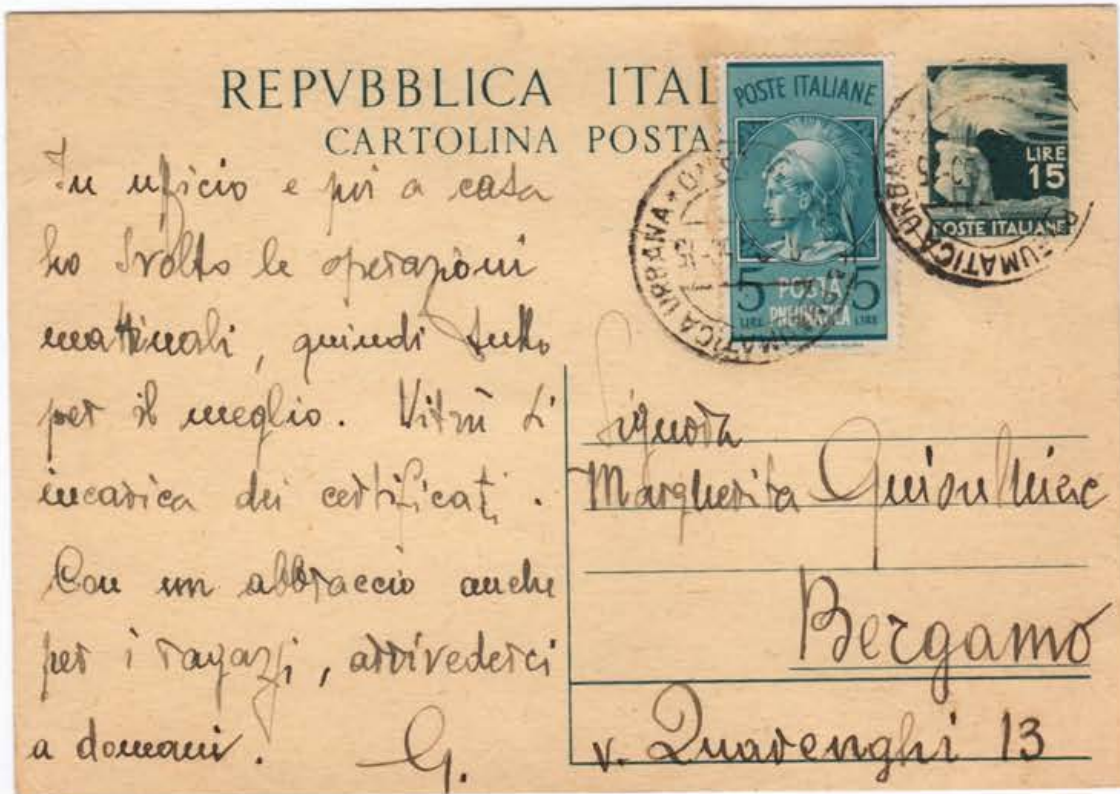 REPVBBLICA ITAL
CARTOLINA POSTA
POSTE ITALIANE
5 POSTA 5
LIRE PNEUMATICA LIRE
LIRE
15
POSTE ITALIANE
PNEUMATICA URBANA
PNEUMATICA URBANA
In uficio e poi a casa
ho svolto le operazioni
mattinali, quindi tutto
per il meglio. Vitrù si
incarica dei certificati.
Con un abbraccio anche
per i ragazzi, arrivederci
a domani. G.
Signora
Margherita
Bergamo
v. Quarenghi 13